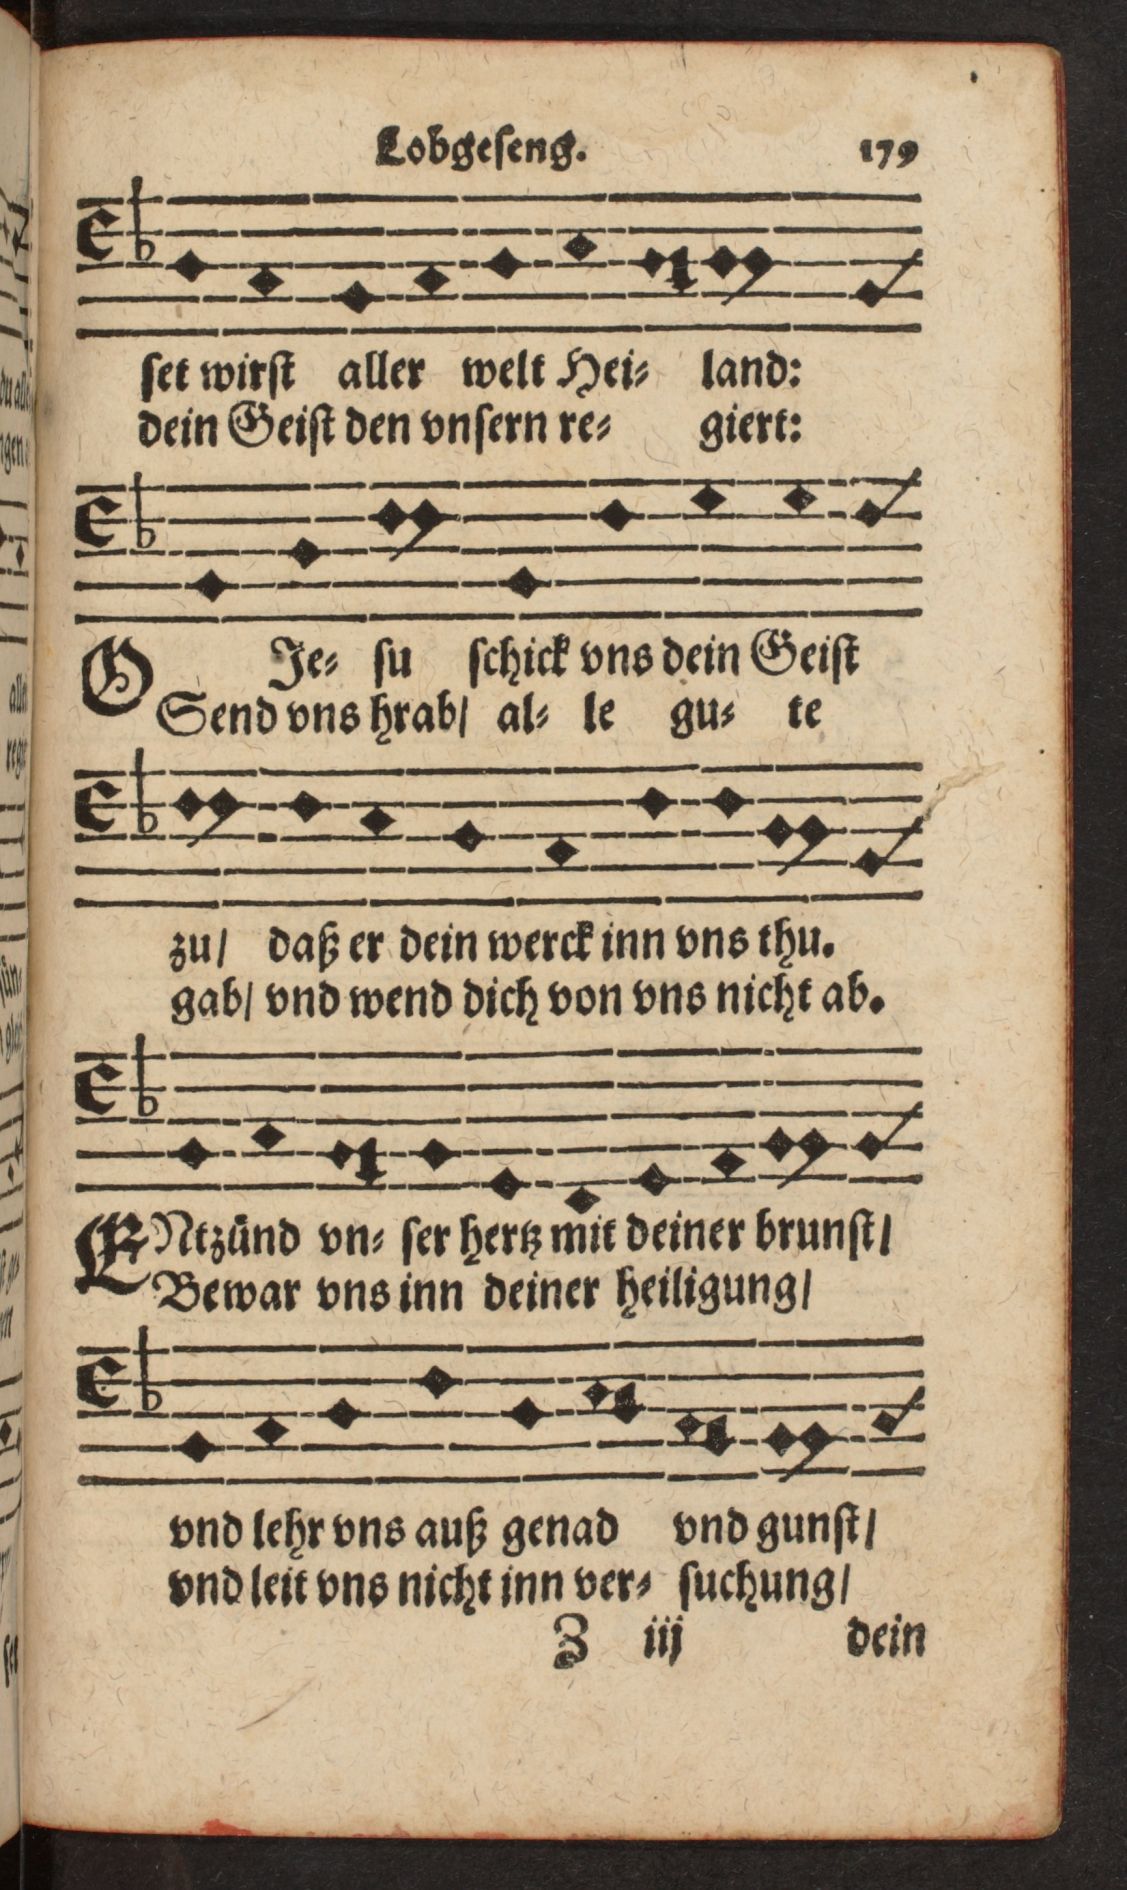 Lobgeseng. 179
set wirst aller welt Hei- land:
dein Geist den vnsern re- giert:
O Je- su schick vns dein Geist
Send vns hrab/ al- le gu- te
zu/ daß er dein werck inn vns thu.
gab/ vnd wend dich von vns nicht ab.
ENtzünd vn- ser hertz mit deiner brunst/
Bewar vns inn deiner heiligung/
vnd lehr vns auß genad vnd gunst/
vnd leit vns nicht inn ver- suchung/
Z iij dein